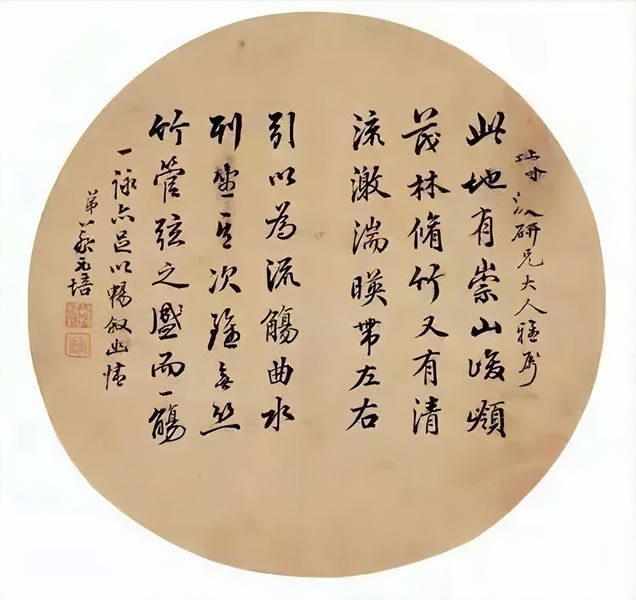 研兄大人雅属
此地有崇山峻領
茂林脩竹又有清
流激湍暎帶左右
引以為流觴曲水
列坐其次雖無丝
竹管弦之盛而一觴
一詠亦足以暢叙幽情
弟蔡元培